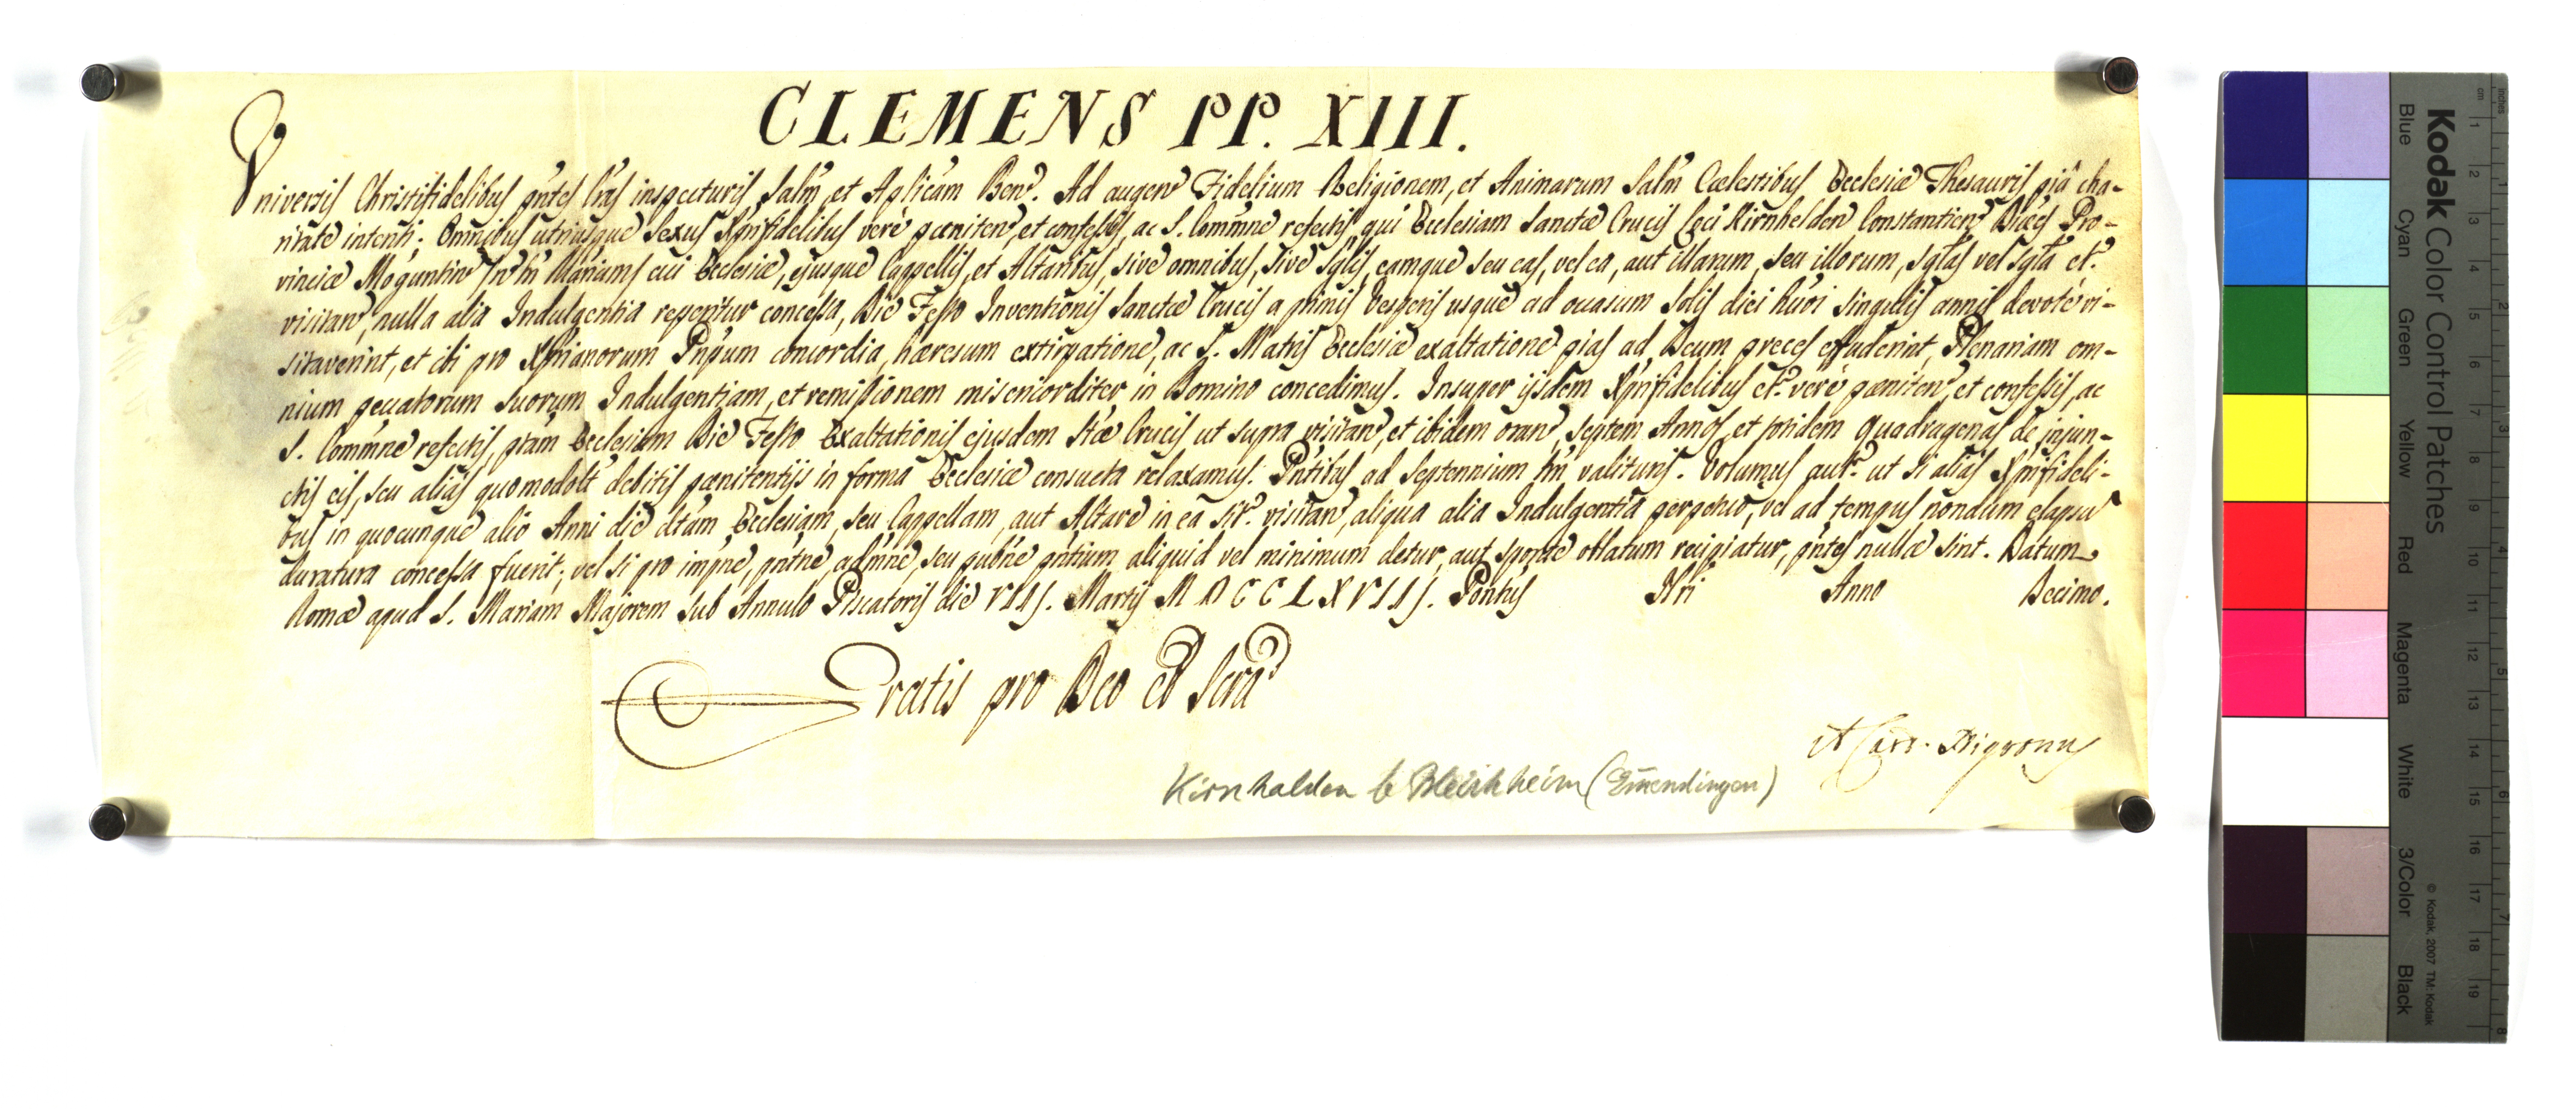 CLEMENS PP. XIII.
Vniversis Christifidelibus pñtes lr̃as inspecturis, Salm̃, et Apl̃icam Ben̄. Ad augen̄ Fidelium Religionem, et Animarum Salm̃ Cœlestibus Ecclesiæ Thesauris piâ cha-
ritate intenti: Omnibus utriusque Sexus Xp̃ifidelibus verè pœniten̄, et confessis, ac S. Comm̃ne refectis, qui Ecclesiam Sanctæ Crucis Loci Kirnhelden Constantien̄ Diœc̃ Pro-
vinciæ Moguntin̄ cui Ecclesiæ, ejusque Cappellis, et Altaribus, sive omnibus, sive sgl̃is, eamque seu eas, vel ea, aut illarum, seu illorum, sgl̃as vel sgl̃a et̃.
visitan̄, nulla alia Indulgentia reperitur concessa, Die Festo Inventionis Sanctæ Crucis a primis Vesperis usque ad occasum Solis diei hm̃oi singulis annis devotè vi-
sitaverint, et ibi pro Xp̃ianorum Pnp̃um concordia, hæresum extirpatione, ac S. Matris Ecclesiæ exaltatione pias ad Deum preces effuderint, Plenariam om-
nium peccatorum suorum Indulgentiam, et remissionem misericorditer in Domino concedimus. Insuper ijsdem Xp̃ifidelibus et̃. verè pœniten̄, et confessis, ac
S. Comm̃ne refectis, pr̃am Ecclesiam Die Festo Exaltationis ejusdem Stæ Crucis ut supra visitan̄, et ibidem oran̄, septem Annos, et totidem Quadragenas de injun-
ctis eis, seu alias quomodol̃t debitis pœnitentijs in forma Ecclesiæ consueta relaxamus. Pñtibus ad Septennium tm̃ valituris. Volumus aut̃. ut si alias Xp̃ifideli-
bus in quocunque alio Anni die dtam Ecclesiam, seu Cappellam, aut Altare in ea sit̃. visitan̄, aliqua alia Indulgentia perpetuo, vel ad tempus nondum elapsũ
duratura concessa fuerit; vel si pro impñe, pñtne, admñe, seu pubñe pñtium aliquid vel minimum detur, aut sponte oblatum recipiatur, pñtes nullæ sint. Datum
Romæ apud S. Mariam Majorem sub Annulo Piscatoris die VIIJ. Martij MDCCLXVIIJ. Pontũs Nri Anno Decimo.
Gratis pro Deo et Scrã
Kirnhalden b Bleichheim (Em̄endingen)